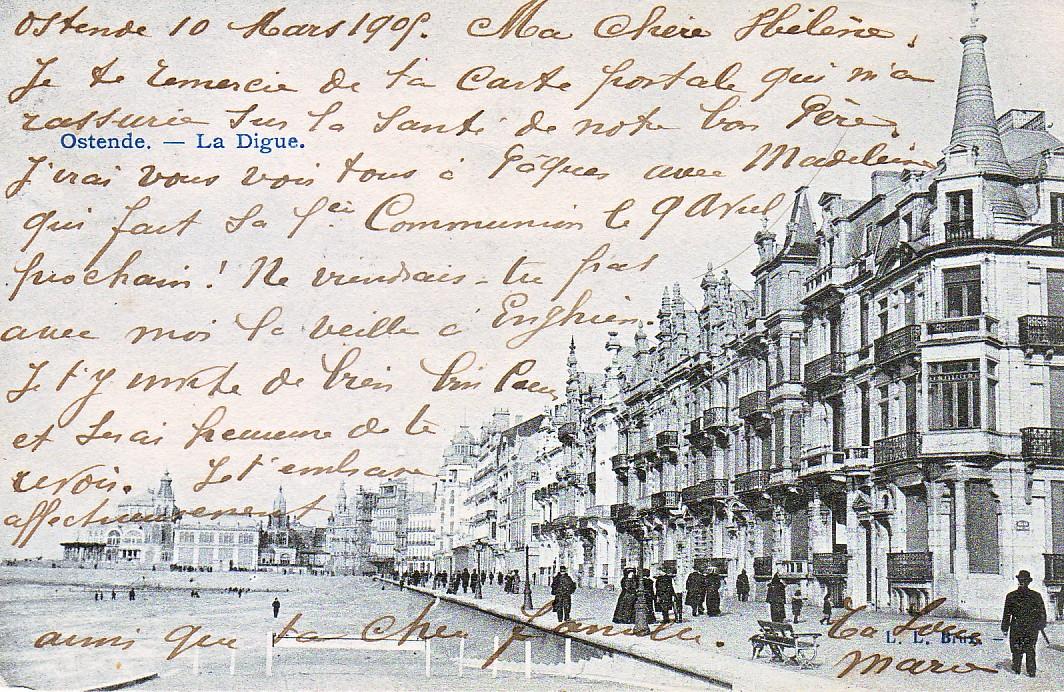 Ostende 10 Mars 1905. Ma Chère Hélène,
Je te remercie de ta Carte postale qui m'a
rassurée sur la Santé de notre bon Père,
Ostende. — La Digue.
J'irai vous voir tous à Pâques avec Madeleine
qui fait sa 1ère Communion le 9 Avril
prochain! Ne viendrais-tu pas
avec moi la veille à Enghien.
Je t'y invite de bien bon Coeur
et serai heureuse de te
revoir. Je t'embrasse
affectueusement
ainsi que ta chère famille.
Ta
L. L. Brux. —